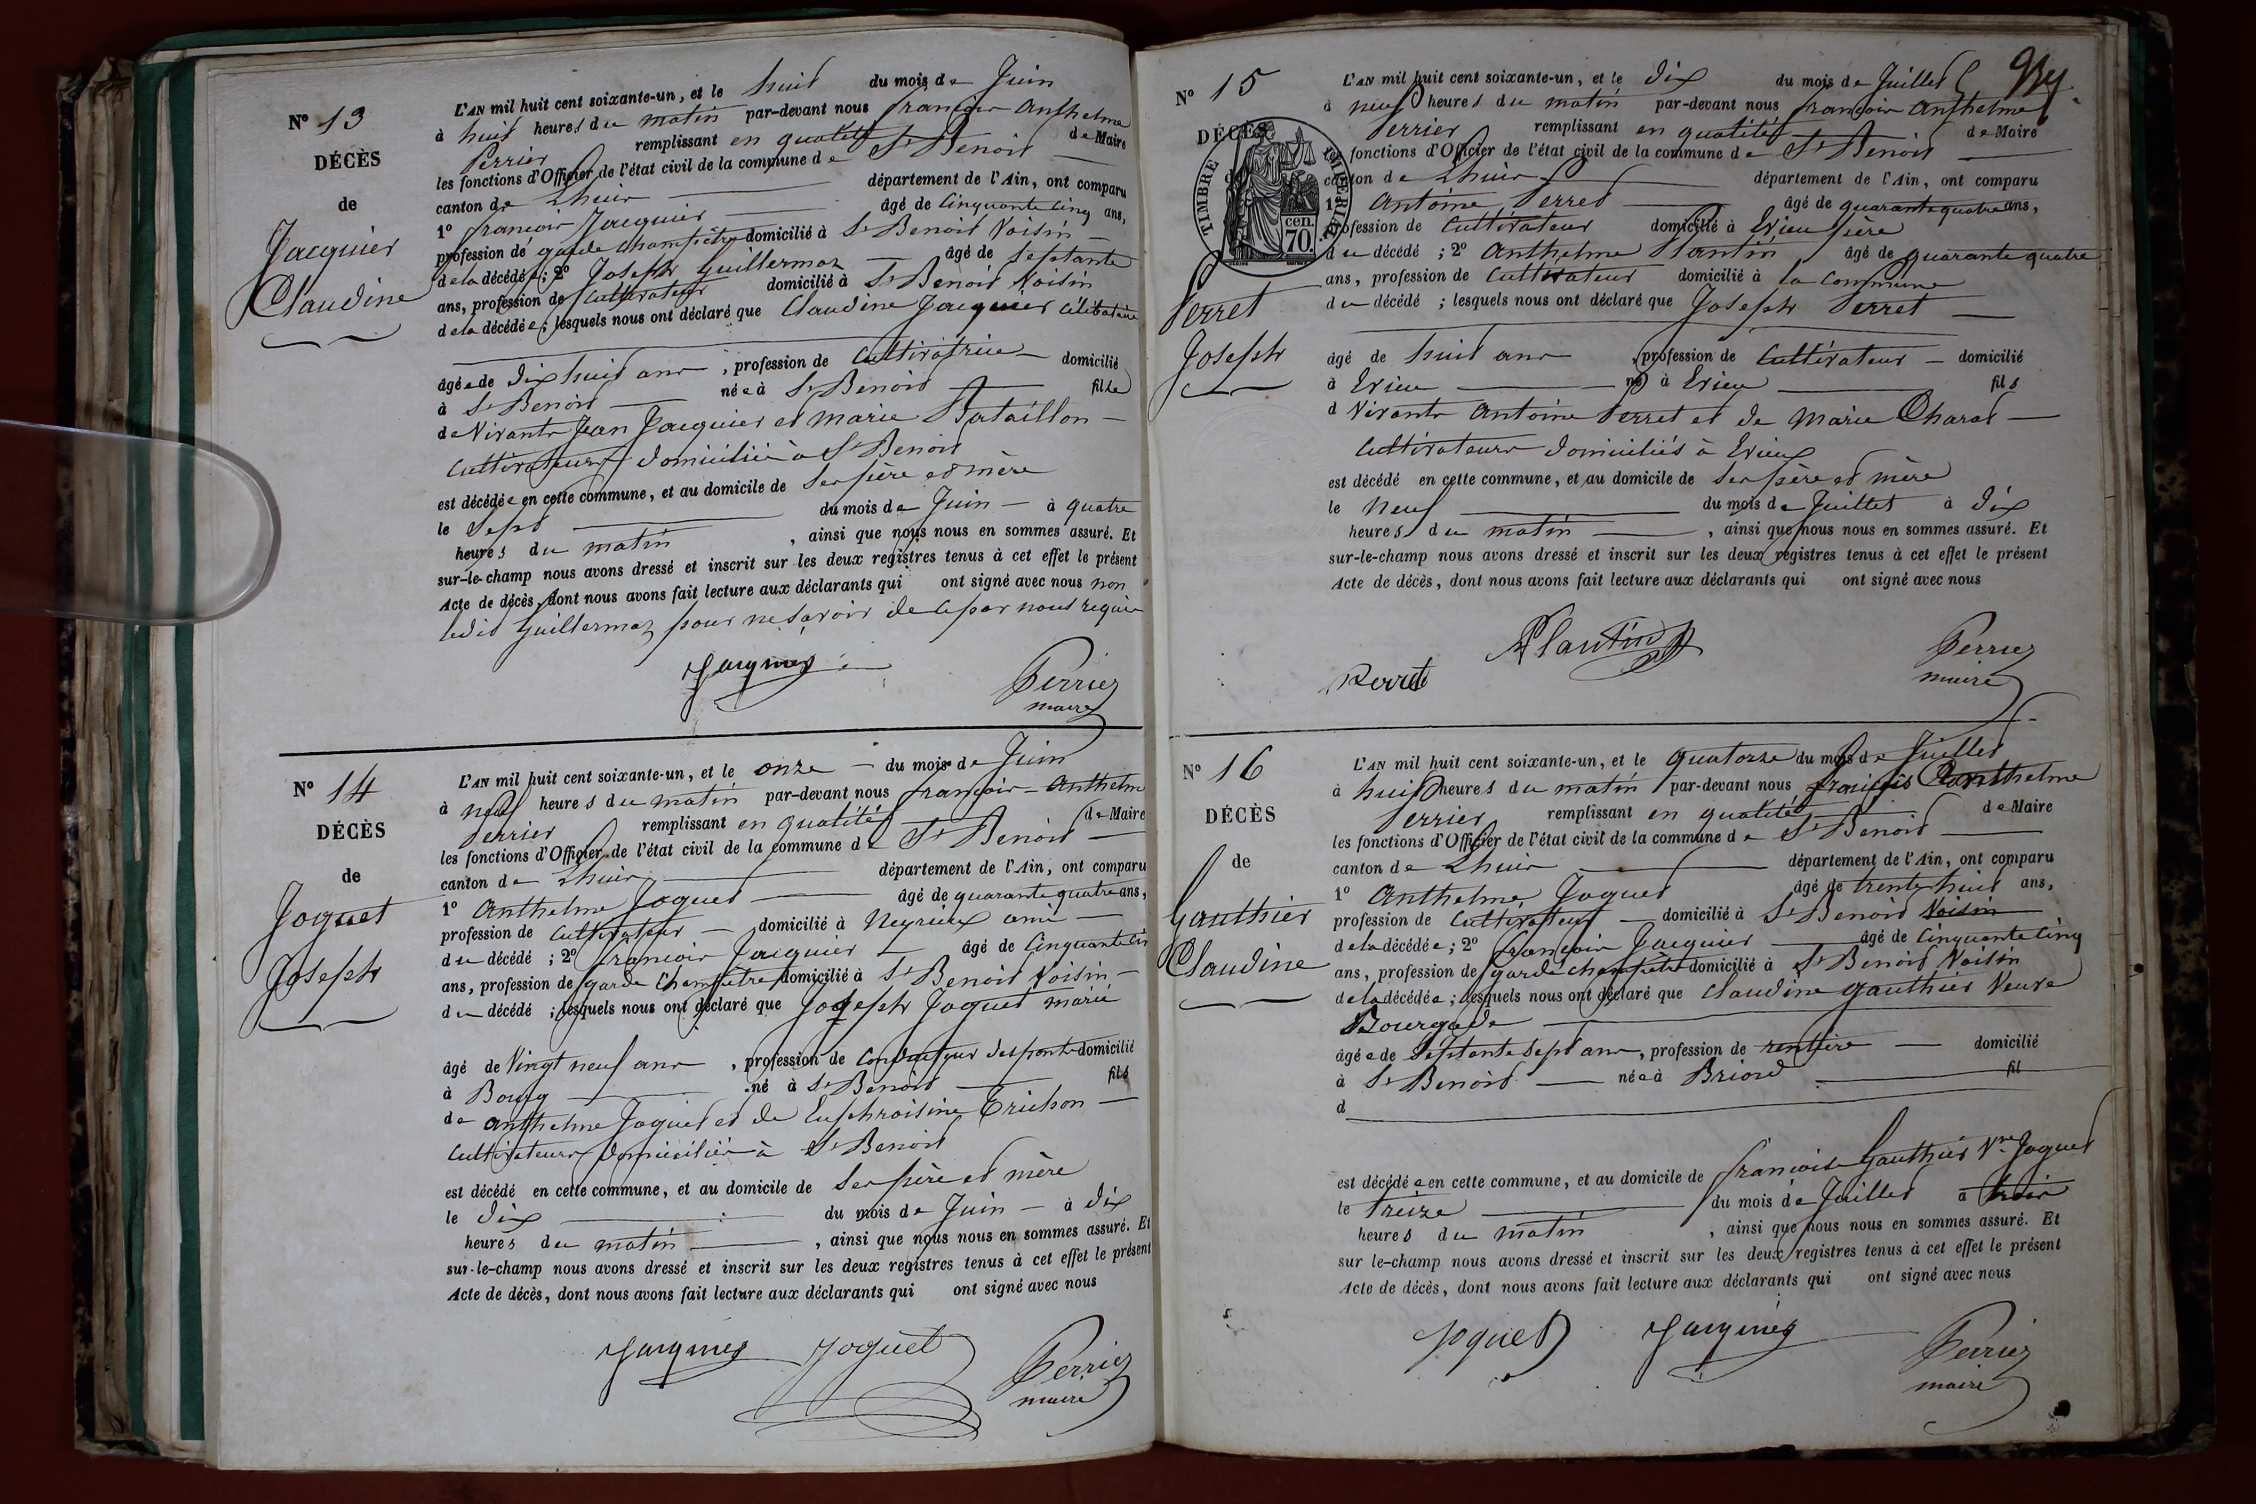 N° 13
DÉCÈS
de
Jacquier
Claudine
L'AN mil huit cent soixante-un, et le huit du mois de Juin
à huit heures du matin par-devant nous françois Anthelme
Perrier remplissant en qualité de Maire
les fonctions d'Officier de l'état civil de la commune de St Benoit
canton de Lhuis département de l'Ain, ont comparu
1° françois Jacquier âgé de Cinquante Cinq ans,
profession de garde champêtre domicilié à St Benoit Voisin
de la décédée ; 2° Joseph Guillermoz âgé de Septante
ans, profession de Cultivateur domicilié à St Benoit Voisin
de la décédée ; lesquels nous ont déclaré que Claudine Jacquier Célibataire
âgée de Dix huit ans, profession de Cultivatrice domicilié
à St Benoit née à St Benoit fille
de Vivants Jean Jacquier et Marie Bataillon
Cultivateurs domiciliés à St Benoit
est décédée en cette commune, et au domicile de Ses père et mère
le Sept du mois de Juin à quatre
heures du matin, ainsi que nous nous en sommes assuré. Et
sur-le-champ nous avons dressé et inscrit sur les deux registres tenus à cet effet le présent
Acte de décès, dont nous avons fait lecture aux déclarants qui ont signé avec nous non
ledit Guillermoz pour ne savoir de ce par nous requis
Jacquier
Perrier
maire
N° 14
DÉCÈS
de
Joguet
Joseph
L'AN mil huit cent soixante-un, et le onze du mois de Juin
à neuf heures du matin par-devant nous françois Anthelme
Perrier remplissant en qualité de Maire
les fonctions d'Officier de l'état civil de la commune de St Benoit
canton de Lhuis département de l'Ain, ont comparu
1° Anthelme Joguet âgé de quarante quatre ans,
profession de Cultivateur domicilié à Neyrieux ami
du décédé ; 2° françois Jacquier âgé de Cinquante
ans, profession de garde Champêtre domicilié à St Benoit Voisin
du décédé ; lesquels nous ont déclaré que Joseph Joguet marié
âgé de Vingt neuf ans, profession de Conducteur des ponts domicilié
à Bourg né à St Benoit fils
de Anthelme Joguet et de Euphroisine Trichon
Cultivateurs Domiciliés à St Benoit
est décédé en cette commune, et au domicile de Ses père et mère
le Dix du mois de Juin à Dix
heures du matin, ainsi que nous nous en sommes assuré. Et
sur-le-champ nous avons dressé et inscrit sur les deux registres tenus à cet effet le présent
Acte de décès, dont nous avons fait lecture aux déclarants qui ont signé avec nous
Jacquier Joguet
Perrier
maire
N° 15
DÉCÈS
TIMBRE IMPERIAL
cen.
70.
Perret
Joseph
L'AN mil huit cent soixante-un, et le Dix du mois de Juillet
à neuf heures du matin par-devant nous françois Anthelme
Perrier remplissant en qualité de Maire
fonctions d'Officier de l'état civil de la commune de St Benoit
canton de Lhuis département de l'Ain, ont comparu
1° Antoine Perret âgé de quarante quatre ans,
profession de Cultivateur domicilié à Evieu père
du décédé ; 2° Anthelme Plantin âgé de quarante quatre
ans, profession de Cultivateur domicilié à la Commune
du décédé ; lesquels nous ont déclaré que Joseph Perret
âgé de huit ans, profession de Cultivateur domicilié
à Evieu né à Evieu fils
d Vivants Antoine Perret et de Marie Charat
Cultivateurs domiciliés à Evieu
est décédé en cette commune, et au domicile de Ses père et mère
le Neuf du mois de Juillet à Dix
heures du matin, ainsi que nous nous en sommes assuré. Et
sur-le-champ nous avons dressé et inscrit sur les deux registres tenus à cet effet le présent
Acte de décès, dont nous avons fait lecture aux déclarants qui ont signé avec nous
Plantin
Perret
Perrier
maire
N° 16
DÉCÈS
de
Gauthier
Claudine
L'AN mil huit cent soixante-un, et le quatorze du mois de Juillet
à huit heures du matin par-devant nous françois Anthelme
Perrier remplissant en qualité de Maire
les fonctions d'Officier de l'état civil de la commune de St Benoit
canton de Lhuis département de l'Ain, ont comparu
1° Anthelme Joguet âgé de trente huit ans,
profession de Cultivateur domicilié à St Benoit Voisin
de la décédée ; 2° françois Jacquier âgé de Cinquante Cinq
ans, profession de garde champêtre domicilié à St Benoit Voisin
de la décédée ; lesquels nous ont déclaré que Claudine Gauthier Veuve
Bourgade
âgée de Septante Sept ans, profession de rentière domicilié
à St Benoit née à Briord fil
d
est décédée en cette commune, et au domicile de françoise Gauthier Vve Joguet
le treize du mois de Juillet à trois
heures du matin, ainsi que nous nous en sommes assuré. Et
sur le-champ nous avons dressé et inscrit sur les deux registres tenus à cet effet le présent
Acte de décès, dont nous avons fait lecture aux déclarants qui ont signé avec nous
Joguet Jacquier
Perrier
maire